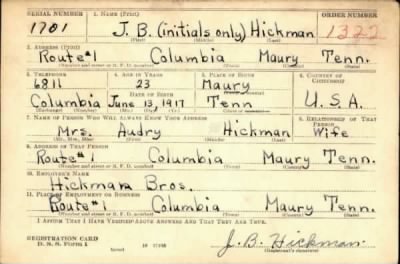 SERIAL NUMBER 1. NAME (Print) ORDER NUMBER
1701 J. B. (initials only) Hickman 1322
(First) (Middle) (Last)
2. ADDRESS (Print)
Route #1 Columbia Maury Tenn.
(Number and street or R. F. D. number) (Town) (County) (State)
3. TELEPHONE 4. AGE IN YEARS 5. PLACE OF BIRTH 6. COUNTRY OF CITIZENSHIP
6811 23 Maury
DATE OF BIRTH (Town or county)
Columbia June 13, 1917 Tenn U.S.A.
(Exchange) (Mo.) (Day) (Yr.) (State or country)
7. NAME OF PERSON WHO WILL ALWAYS KNOW YOUR ADDRESS 8. RELATIONSHIP OF THAT PERSON
Mrs. Audry Hickman Wife
(Mr., Mrs., Miss) (First) (Middle) (Last)
9. ADDRESS OF THAT PERSON
Route #1 Columbia Maury Tenn.
(Number and street or R. F. D. number) (Town) (County) (State)
10. EMPLOYER'S NAME
Hickman Bros.
11. PLACE OF EMPLOYMENT OR BUSINESS
Route #1 Columbia Maury Tenn.
(Number and street or R. F. D. number) (Town) (County) (State)
I AFFIRM THAT I HAVE VERIFIED ABOVE ANSWERS AND THAT THEY ARE TRUE.
REGISTRATION CARD
D. S. S. Form 1 J. B. Hickman
(Registrant's signature)